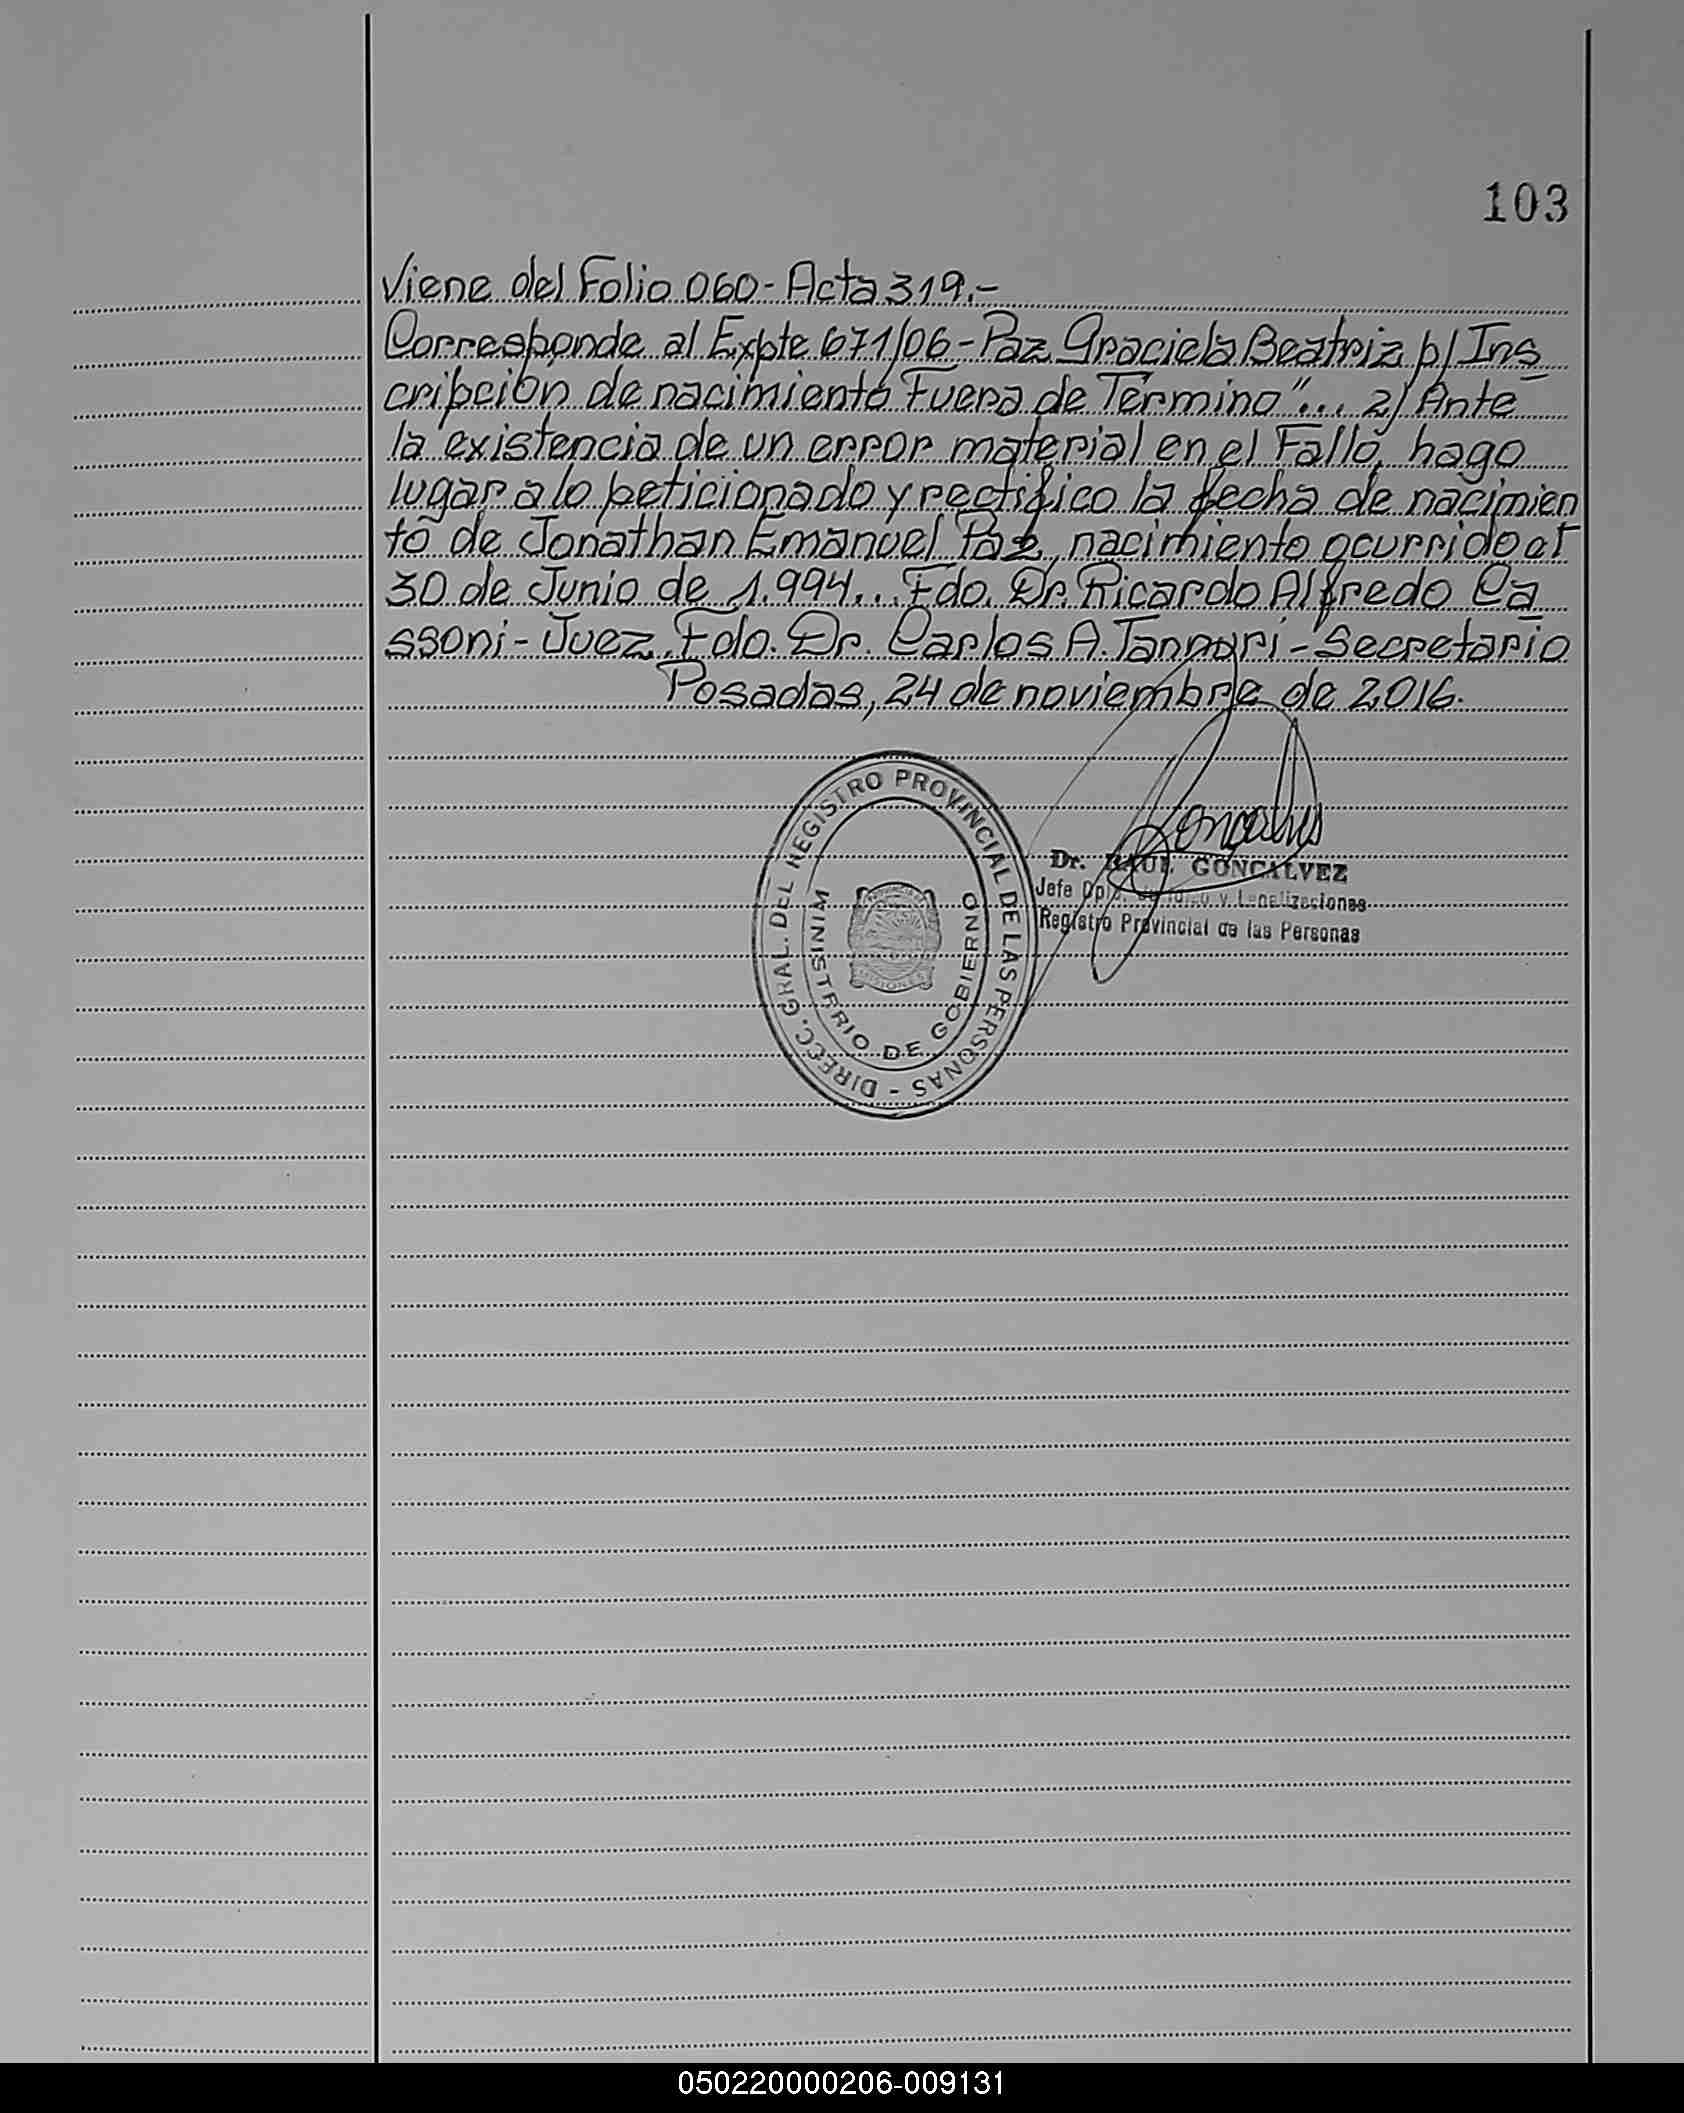 103
Viene del Folio 060- Acta 319.-
Corresponde al Expte 671/06- Paz Graciela Beatriz p/ Ins
cripción de nacimiento Fuera de Término"... 2) Ante
la existencia de un error material en el Fallo, hago
lugar a lo peticionado y rectifico la fecha de nacimien
to de Jonathan Emanuel Paz, nacimiento ocurrido el
30 de Junio de 1.994... Fdo. Dr. Ricardo Alfredo Ca
ssoni- Juez. Fdo. Dr. Carlos A. Tannuri- Secretario
Posadas, 24 de noviembre de 2016.
DIRECC. GRAL. DEL REGISTRO PROVINCIAL DE LAS PERSONAS -
MINISTERIO DE GOBIERNO
PROVINCIA DE
MISIONES
Dr. RAUL GONCALVEZ
Jefe Dpto. y Legalizaciones
Registro Provincial de las Personas
050220000206-009131